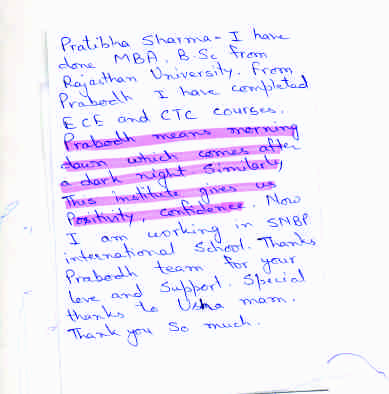 Pratibha Sharma - I have
done MBA, B.Sc from
Rajasthan University. From
Prabodh I have completed
ECE and CTC courses.
Prabodh means morning
dawn which comes after
a dark night. Similarly,
This institute gives us
Positivity, confidence. Now
I am working in SNBP
international School. Thanks
Prabodh team for your
love and Support. Special
thanks to Usha mam.
Thank you So much.